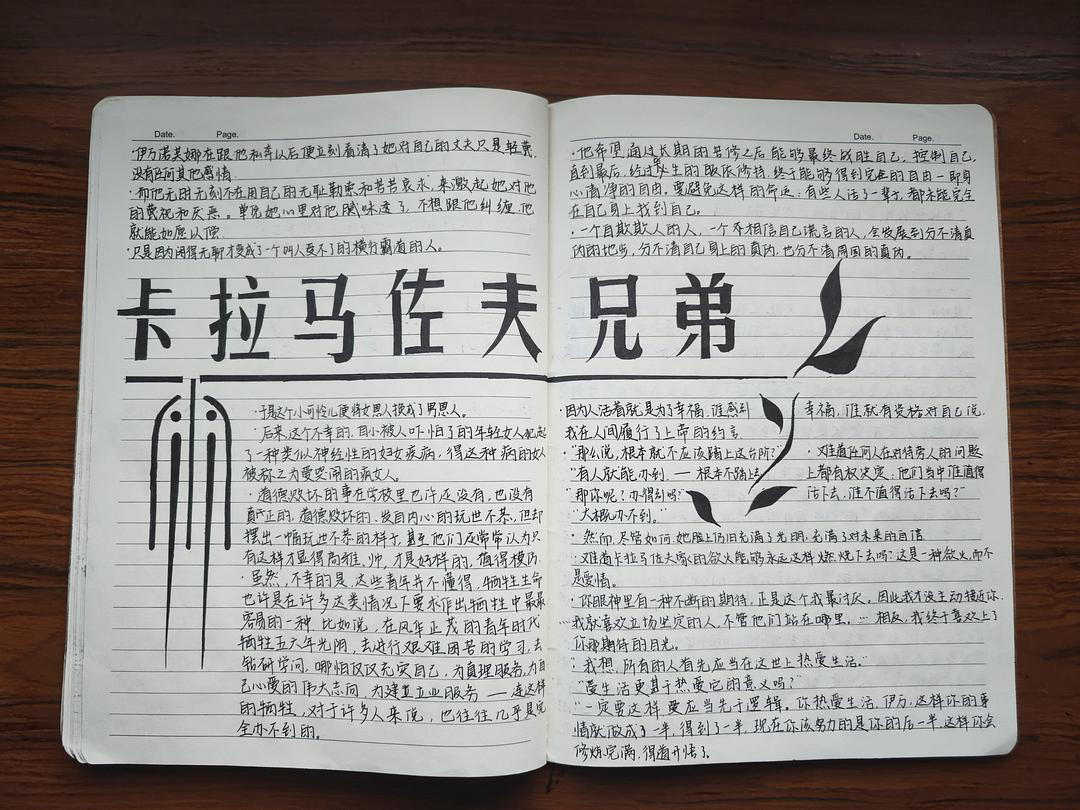 Date. Page.
·伊万诺芙娜在跟他私奔以后便立刻看清了她对自己的丈夫只是轻蔑,
没有任何其他感情.
·而他无时无刻不在用自己的无耻勒索和苦苦哀求,来激起她对他
的蔑视和厌恶。单凭她心里对他腻味透了,不想跟他纠缠,他
就能如愿以偿.
·只是因为闲得无聊才变成了一个叫人受不了的横行霸道的人。
卡拉马佐夫
·于是这个小可怜儿便将女恩人换成了男恩人。
·后来,这个不幸的,自小被人吓怕了的年轻女人犯起
了一种类似神经性的妇女疾病,得这种病的女人
被称之为爱哭闹的病女人。
·道德败坏的事在学校里也许还没有,也没有
真正的,道德败坏的、发自内心的玩世不恭,但却
摆出一幅玩世不恭的样子,甚至他们还常常认为只
有这样才显得高雅、帅,才是好样的,值得模仿.
·虽然,不幸的是,这些青年并不懂得,牺牲生命
也许是在许多这类情况下要求作出牺牲中最最
容易的一种.比如说,在风华正茂的青年时代
牺牲五六年光阴,去进行艰难困苦的学习,去
钻研学问,哪怕仅仅充实自己,为真理服务,为自
己心爱的伟大志向,为建立业服务——连这样
的牺牲,对于许多人来说,也往往几乎是完
全办不到的。
Date. Page.
·他希望通过长期的苦修之后能够最终战胜自己,控制自己,
直到最后,经过终生的服从修持,终于能够得到完全的自由—即身
心清净的自由,要避免这样的命运:有些人活了一辈子,都未能完全
在自己身上找到自己。
·一个自欺欺人的人,一个本相信自己谎言的人,会发展到分不清真
伪的地步,分不清自己身上的真伪,也分不清周围的真伪。
兄弟
·因为人活着就是为了幸福,谁感到 幸福,谁就有资格对自己说,
我在人间履行了上帝的约言.
·"那么说,根本就不应该踏上这台阶?"
"有人就能办到.——根本不踏上去
"那你呢?办得到吗?"
"大概办不到."
·难道任何人在对待旁人的问题
上都有权决定:他们当中谁值得
活下去,谁不值得活下去吗?"
·然而,尽管如何,她脸上仍旧充满了光明,充满了对未来的自信
·难道卡拉马佐夫家的欲火能够永远这样燃烧下去吗?这是一种欲火,而不
是爱情。
·你眼神里有一种不断的期待,正是这个我最讨厌。因此我才没主动接近你.
·我就喜欢立场坚定的人,不管他们站在哪里.… 相反,我终于喜欢上了
你那期待的目光。
:"我想,所有的人首先应当在这世上热爱生活."
"爱生活更甚于热爱它的意义吗?"
"一定要这样,爱应当先于逻辑。你热爱生活,伊万,这样你的事
情就做成了一半,得到了一半,现在你该努力的是你的后一半,这样你会
修炼完满,得道开悟了.